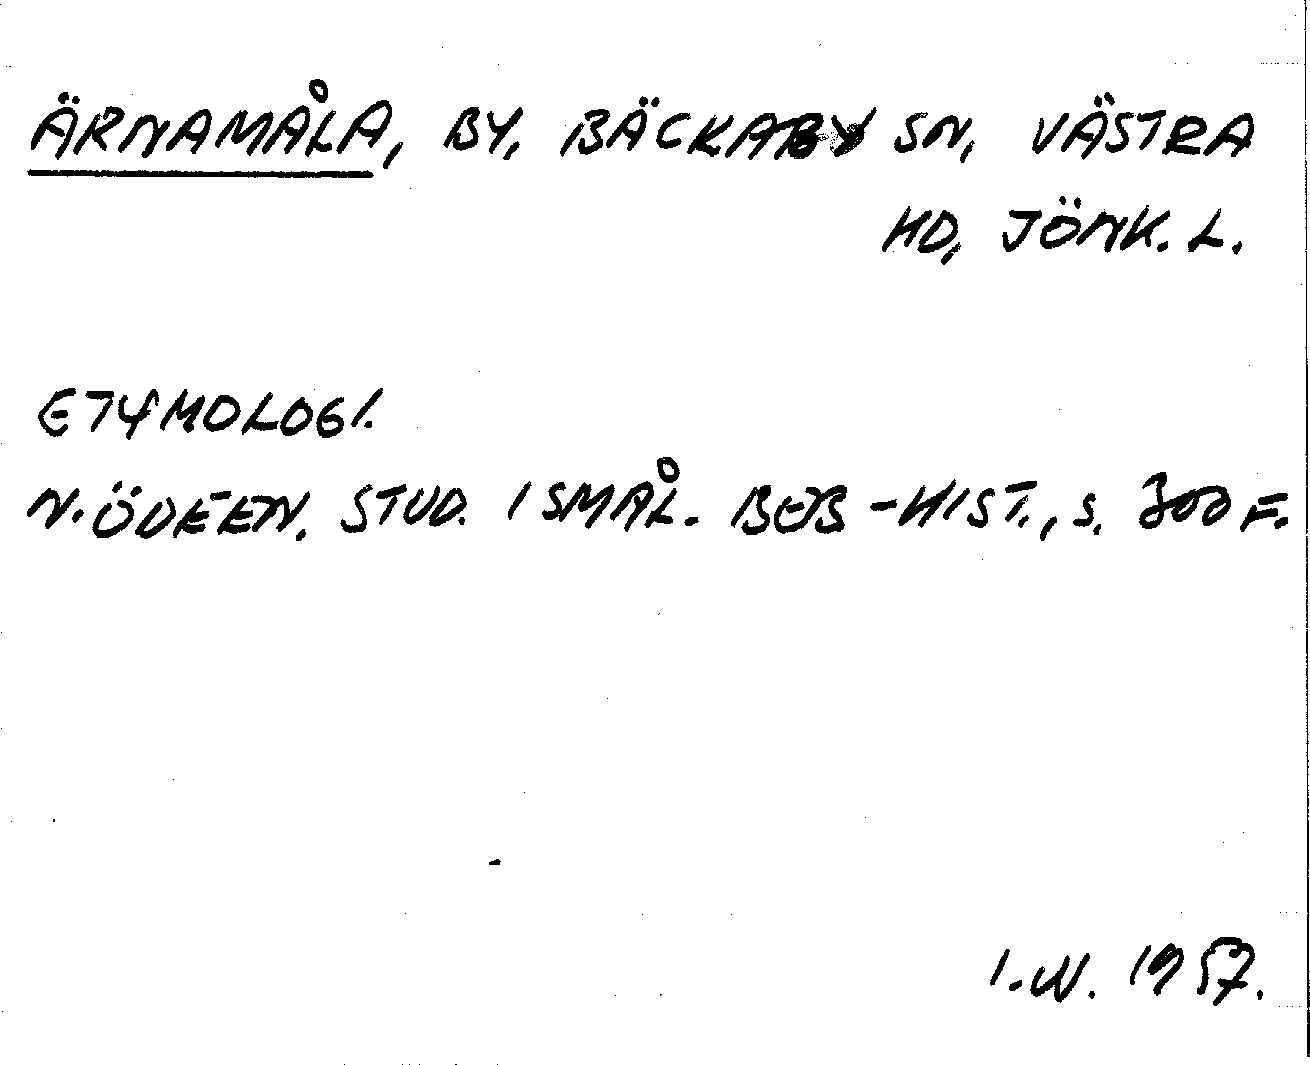 ÄRNAMÅLA, BY, BÄCKABY SN, VÄSTRA
HD, JÖNK. L.
ETYMOLOGI.
N. ÖDEEN. STUD. I SMÅL. BEB-HIST., S. 300 F.
I.W. 1957.